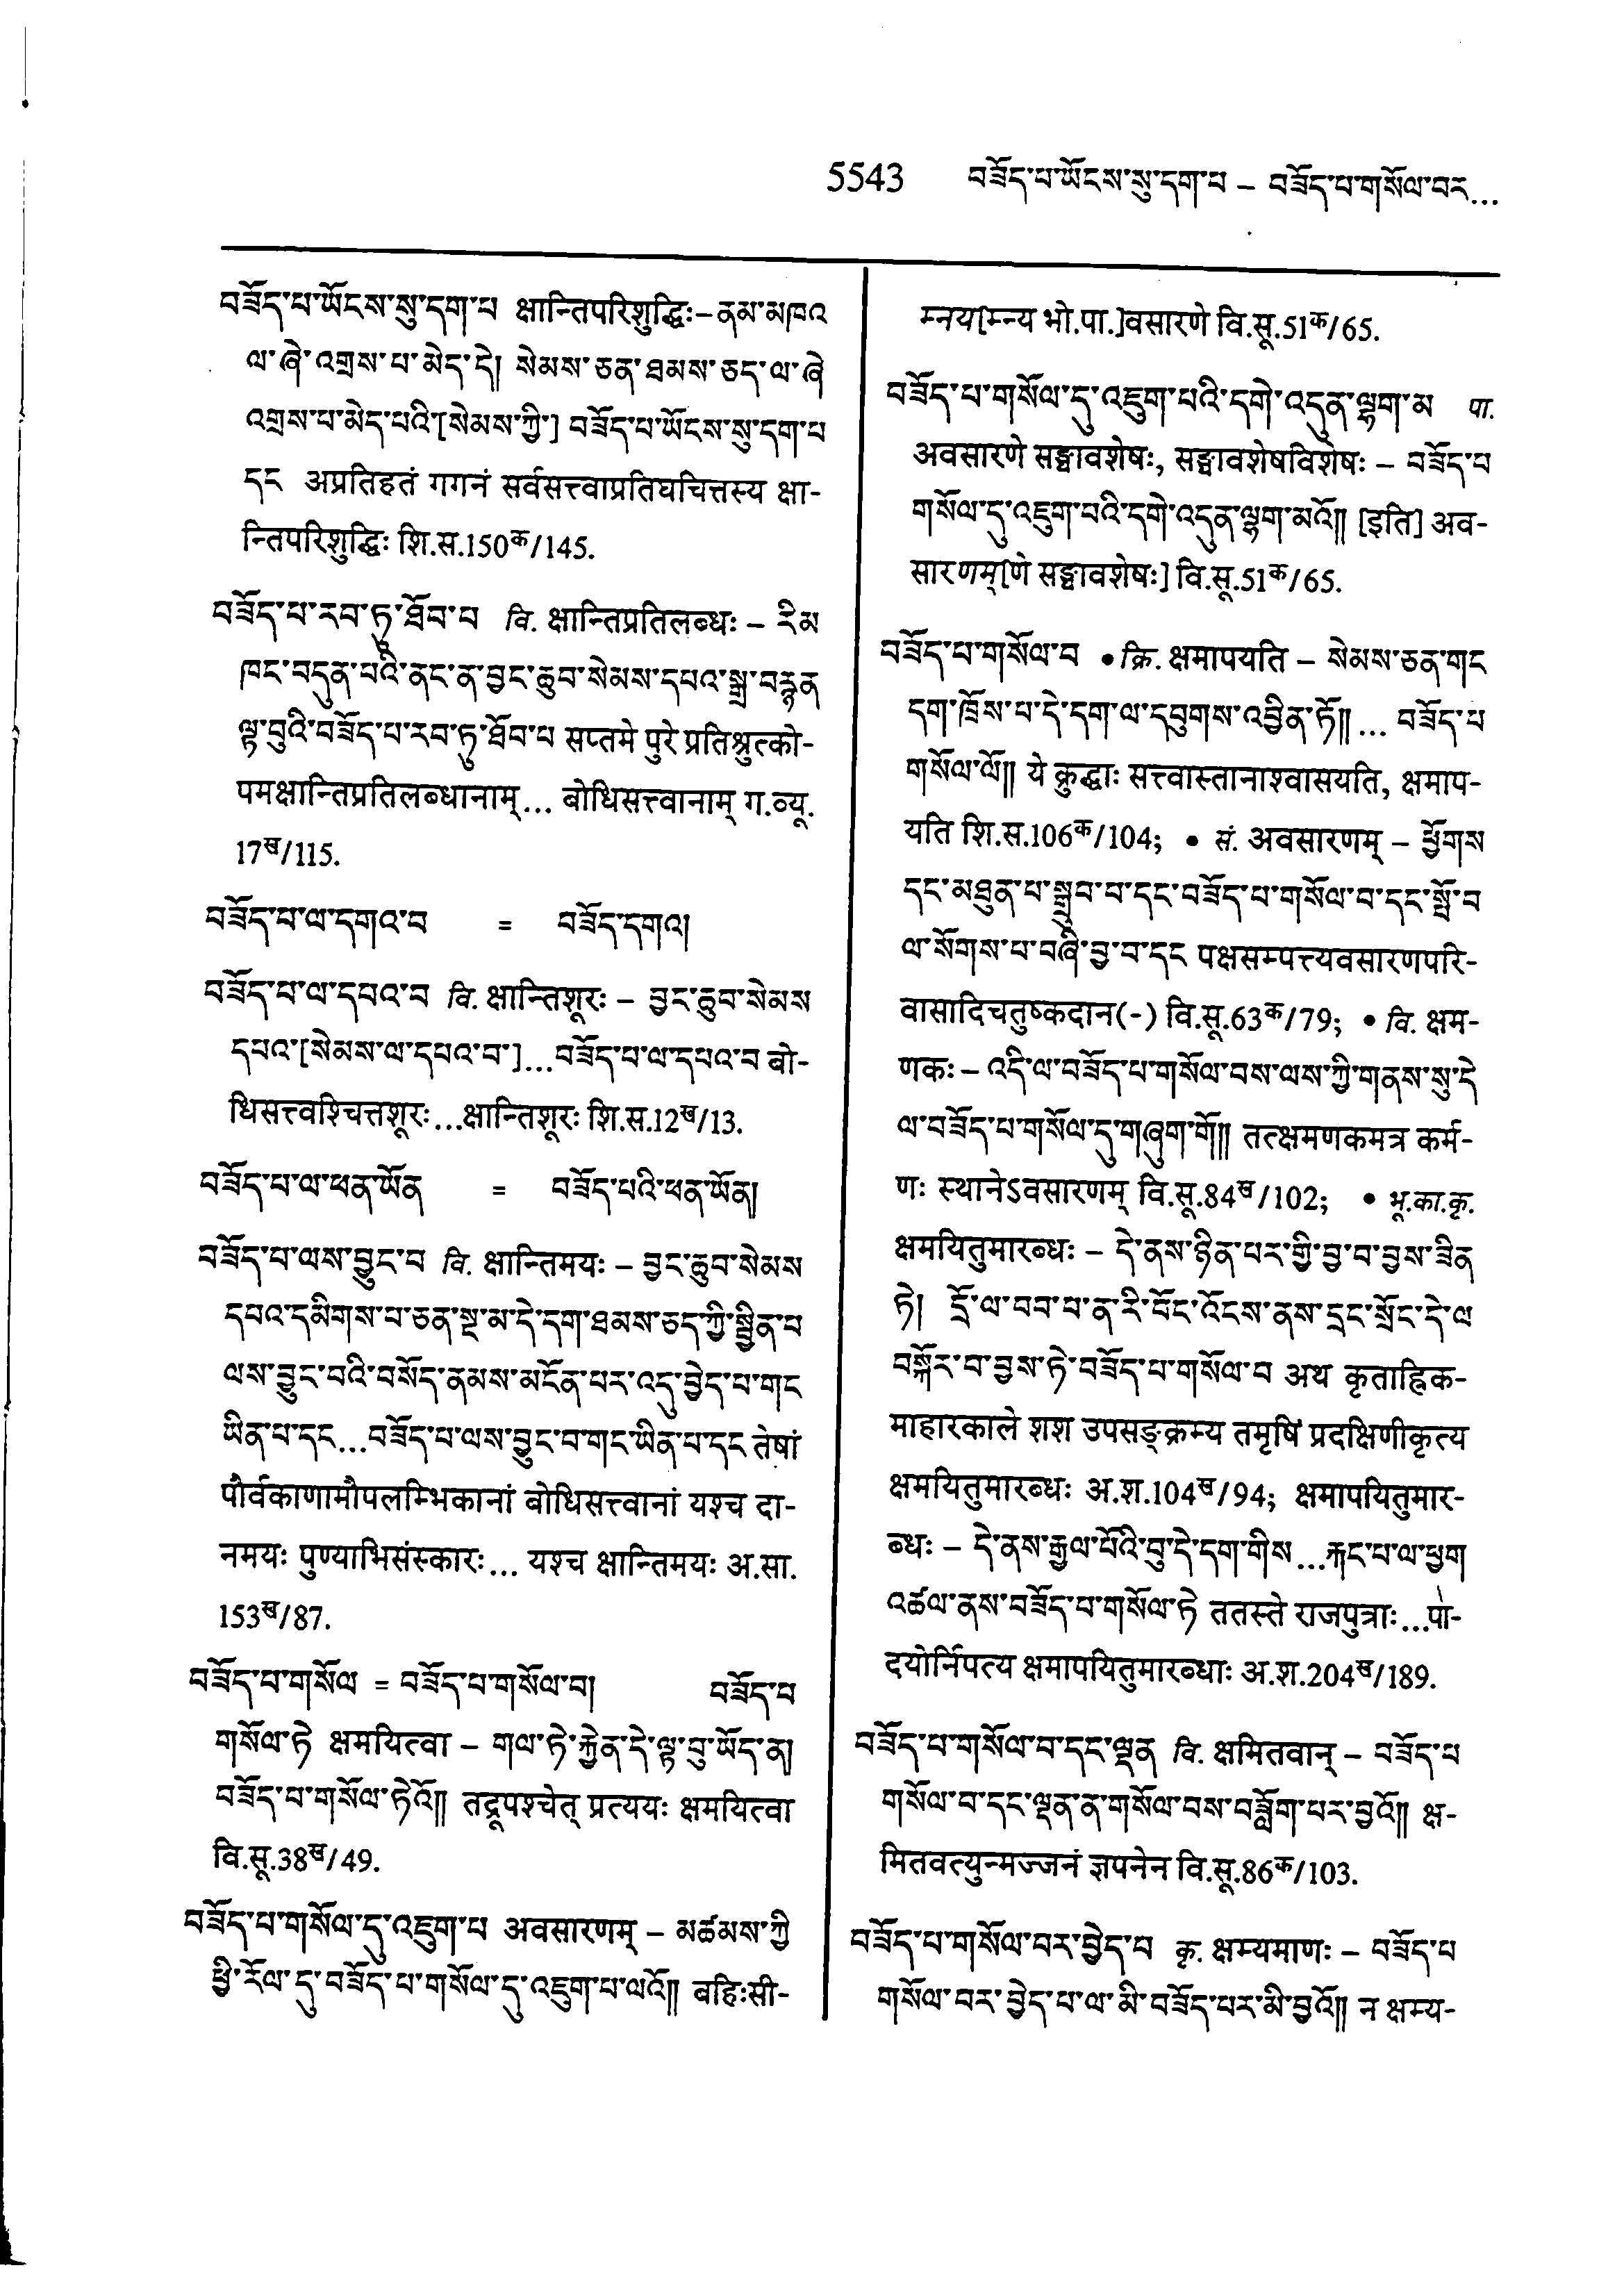 5543 བཟོད་པ་ཡོངས་སུ་དག་པ – བཟོད་པ་གསོལ་བར...
བཟོད་པ་ཡོངས་སུ་དག་པ क्षान्तिपरिशुद्धिः–ནམ་མཁའ
ལ་ཞེ་འགྲས་པ་མེད་དེ། སེམས་ཅན་ཐམས་ཅད་ལ་ཞེ
འགྲས་པ་མེད་པའི་[སེམས་ཀྱི་] བཟོད་པ་ཡོངས་སུ་དག་པ
དང अप्रतिहतं गगनं सर्वसत्त्वाप्रतिघचित्तस्य क्षा-
न्तिपरिशुद्धिः शि.स.150क/145.
བཟོད་པ་རབ་ཏུ་ཐོབ་པ वि. क्षान्तिप्रतिलब्धः – རིམ
ཁང་བདུན་པའི་ནང་ན་བྱང་ཆུབ་སེམས་དཔའ་སྒྲ་བརྙན
ལྟ་བུའི་བཟོད་པ་རབ་ཏུ་ཐོབ་པ सप्तमे पुरे प्रतिश्रुत्को-
पमक्षान्तिप्रतिलब्धानाम्... बोधिसत्त्वानाम् ग.व्यू.
17ख/115.
བཟོད་པ་ལ་དགའ་བ = བཟོད་དགའ།
བཟོད་པ་ལ་དཔའ་བ वि. क्षान्तिशूरः – བྱང་ཆུབ་སེམས
དཔའ་[སེམས་ལ་དཔའ་བ་]...བཟོད་པ་ལ་དཔའ་བ बो-
धिसत्त्वश्चित्तशूरः...क्षान्तिशूरः शि.स.12ख/13.
བཟོད་པ་ལ་ཕན་ཡོན = བཟོད་པའི་ཕན་ཡོན།
བཟོད་པ་ལས་བྱུང་བ वि. क्षान्तिमयः – བྱང་ཆུབ་སེམས
དཔའ་དམིགས་པ་ཅན་སྔ་མ་དེ་དག་ཐམས་ཅད་ཀྱི་སྦྱིན་པ
ལས་བྱུང་བའི་བསོད་ནམས་མངོན་པར་འདུ་བྱེད་པ་གང
ཡིན་པ་དང...བཟོད་པ་ལས་བྱུང་བ་གང་ཡིན་པ་དང तेषां
पौर्वकाणामौपलम्भिकानां बोधिसत्त्वानां यश्च दा-
नमयः पुण्याभिसंस्कारः... यश्च क्षान्तिमयः अ.सा.
153ख/87.
བཟོད་པ་གསོལ = བཟོད་པ་གསོལ་བ། བཟོད་པ
གསོལ་ཏེ क्षमयित्वा – གལ་ཏེ་རྐྱེན་དེ་ལྟ་བུ་ཡོད་ན།
བཟོད་པ་གསོལ་ཏེའོ།། तद्रूपश्चेत् प्रत्ययः क्षमयित्वा
वि.सू.38ख/49.
བཟོད་པ་གསོལ་དུ་འཇུག་པ अवसारणम् – མཚམས་ཀྱི
ཕྱི་རོལ་དུ་བཟོད་པ་གསོལ་དུ་འཇུག་པ་ལའོ།། बहिःसी-
म्नय[म्न्य भो.पा.]वसारणे वि.सू.51क/65.
བཟོད་པ་གསོལ་དུ་འཇུག་པའི་དགེ་འདུན་ལྷག་མ पा.
अवसारणे सङ्घावशेषः, सङ्घावशेषविशेषः – བཟོད་པ
གསོལ་དུ་འཇུག་པའི་དགེ་འདུན་ལྷག་མའོ།། [इति] अव-
सारणम्[णे सङ्घावशेषः] वि.सू.51क/65.
བཟོད་པ་གསོལ་བ • क्रि. क्षमापयति – སེམས་ཅན་གང
དག་ཁྲོས་པ་དེ་དག་ལ་དབུགས་འབྱིན་ཏོ།། ... བཟོད་པ
གསོལ་ལོ།། ये क्रुद्धाः सत्त्वास्तानाश्वासयति, क्षमाप-
यति शि.स.106क/104; • सं. अवसारणम् – ཕྱོགས
དང་མཐུན་པ་སྒྲུབ་པ་དང་བཟོད་པ་གསོལ་བ་དང་སྤོ་བ
ལ་སོགས་པ་བཞི་བྱ་བ་དང पक्षसम्पत्त्यवसारणपरि-
वासादिचतुष्कदान(-) वि.सू.63क/79; • वि. क्षम-
णकः – འདི་ལ་བཟོད་པ་གསོལ་བས་ལས་ཀྱི་གནས་སུ་དེ
ལ་བཟོད་པ་གསོལ་དུ་གཞུག་གོ།། तत्क्षमणकमत्र कर्म-
णः स्थानेऽवसारणम् वि.सू.84ख/102; • भू.का.कृ.
क्षमयितुमारब्धः – དེ་ནས་ཉིན་པར་གྱི་བྱ་བ་བྱས་ཟིན
ཏེ། དྲོ་ལ་བབ་པ་ན་རི་བོང་འོངས་ནས་དྲང་སྲོང་དེ་ལ
བསྐོར་བ་བྱས་ཏེ་བཟོད་པ་གསོལ་བ अथ कृताह्निक-
माहारकाले शश उपसङ्क्रम्य तमृषिं प्रदक्षिणीकृत्य
क्षमयितुमारब्धः अ.श.104ख/94; क्षमापयितुमार-
ब्धः – དེ་ནས་རྒྱལ་པོའི་བུ་དེ་དག་གིས...རྐང་པ་ལ་ཕྱག
འཚལ་ནས་བཟོད་པ་གསོལ་ཏེ ततस्ते राजपुत्राः...पा-
दयोर्निपत्य क्षमापयितुमारब्धाः अ.श.204ख/189.
བཟོད་པ་གསོལ་བ་དང་ལྡན वि. क्षमितवान् – བཟོད་པ
གསོལ་བ་དང་ལྡན་ན་གསོལ་བས་བཟློག་པར་བྱའོ།། क्ष-
मितवत्युन्मज्जनं ज्ञपनेन वि.सू.86क/103.
བཟོད་པ་གསོལ་བར་བྱེད་པ कृ. क्षम्यमाणः – བཟོད་པ
གསོལ་བར་བྱེད་པ་ལ་མི་བཟོད་པར་མི་བྱའོ།། न क्षम्य-